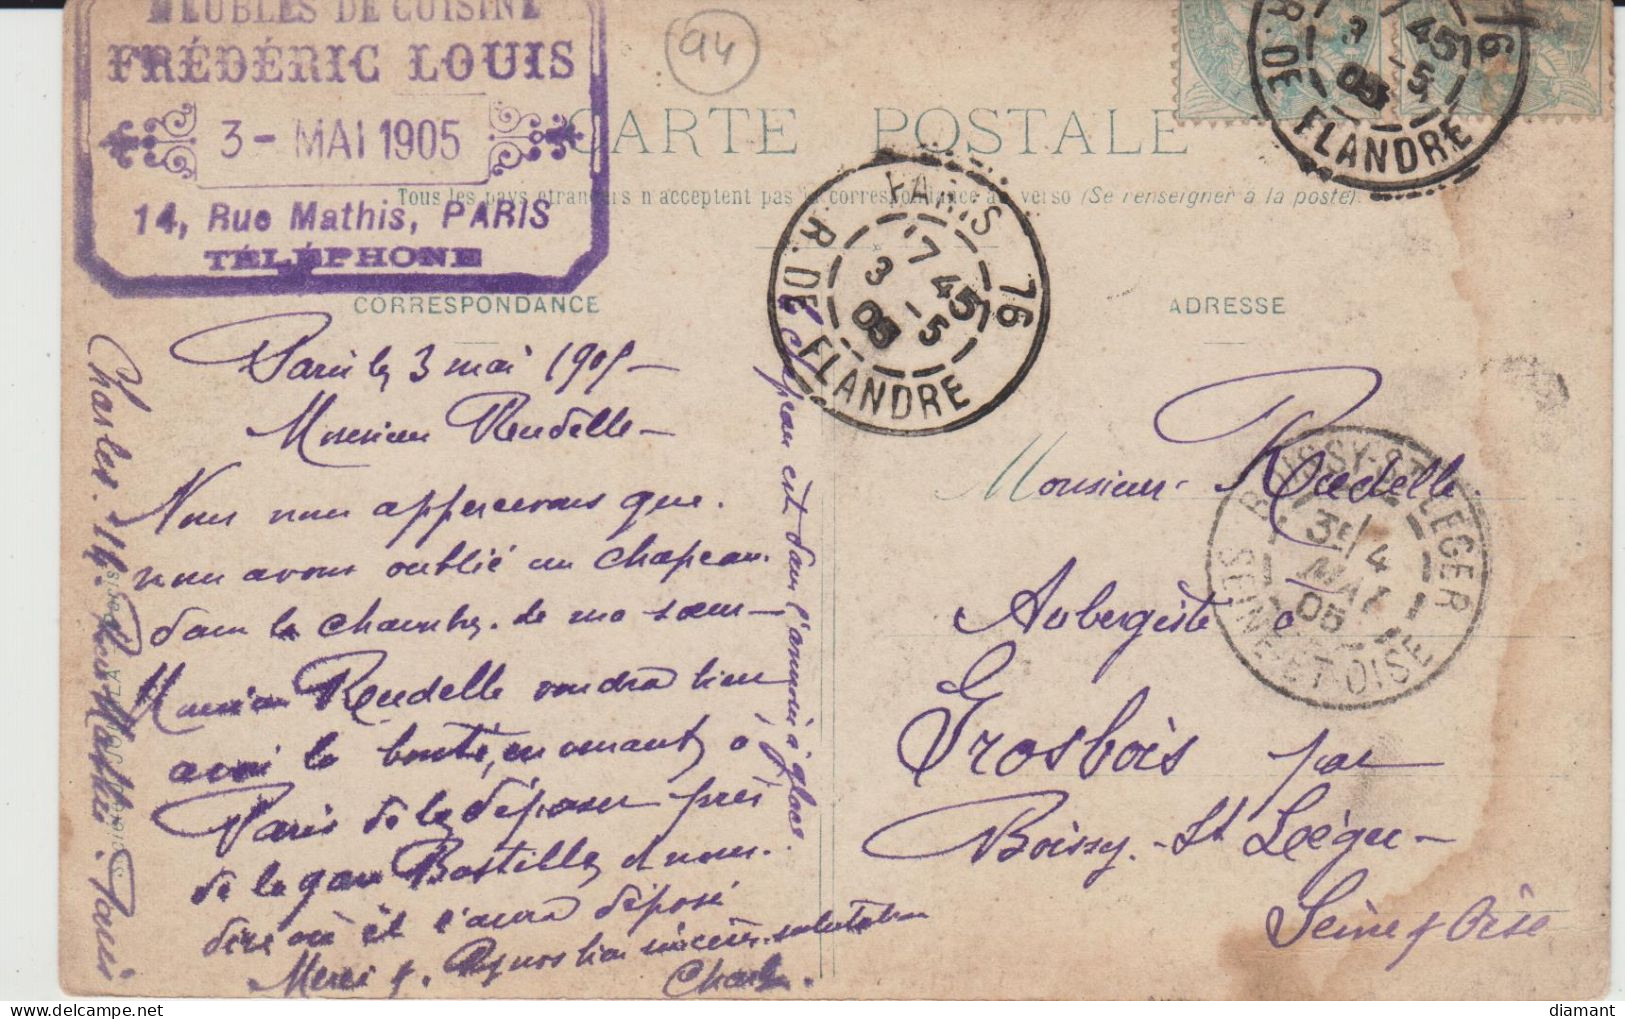 MEUBLES DE CUISINE
FRÉDÉRIC LOUIS
3 - MAI 1905
14, Rue Mathis, PARIS
TÉLÉPHONE
94
CARTE POSTALE
Tous les pays etrangers n'acceptent pas la correspondance au verso (Se renseigner à la poste).
CORRESPONDANCE
ADRESSE
PARIS 76
R. DE FLANDRE
7 45
3 - 5
05
76
R. DE FLANDRE
45
3 - 5
05
BOISSY-ST-LEGER
3E / 4
MAI
05
SEINE-ET-OISE
Paris le 3 mai 1905 -
Monsieur Reudelle -
Nous nous appercevons que.
nous avons oublié un chapeau.
dans la chambre. de ma sœur -
Monsieur Reudelle voudra bien
avoir la bonté, en venant, à
Paris de le déposer près
de la gare Bastille et nous.
dire où il l'aura déposé
Merci &. Reçevez nos bien sincères. salutation
Charles.
le chapeau est dans l'armoir à glace
Charles. 14. Rue Mathis. Paris
Monsieur Reudelle
Aubergiste à
Grosbois par
Boissy - St Léger -
Seine & Oise
diamant